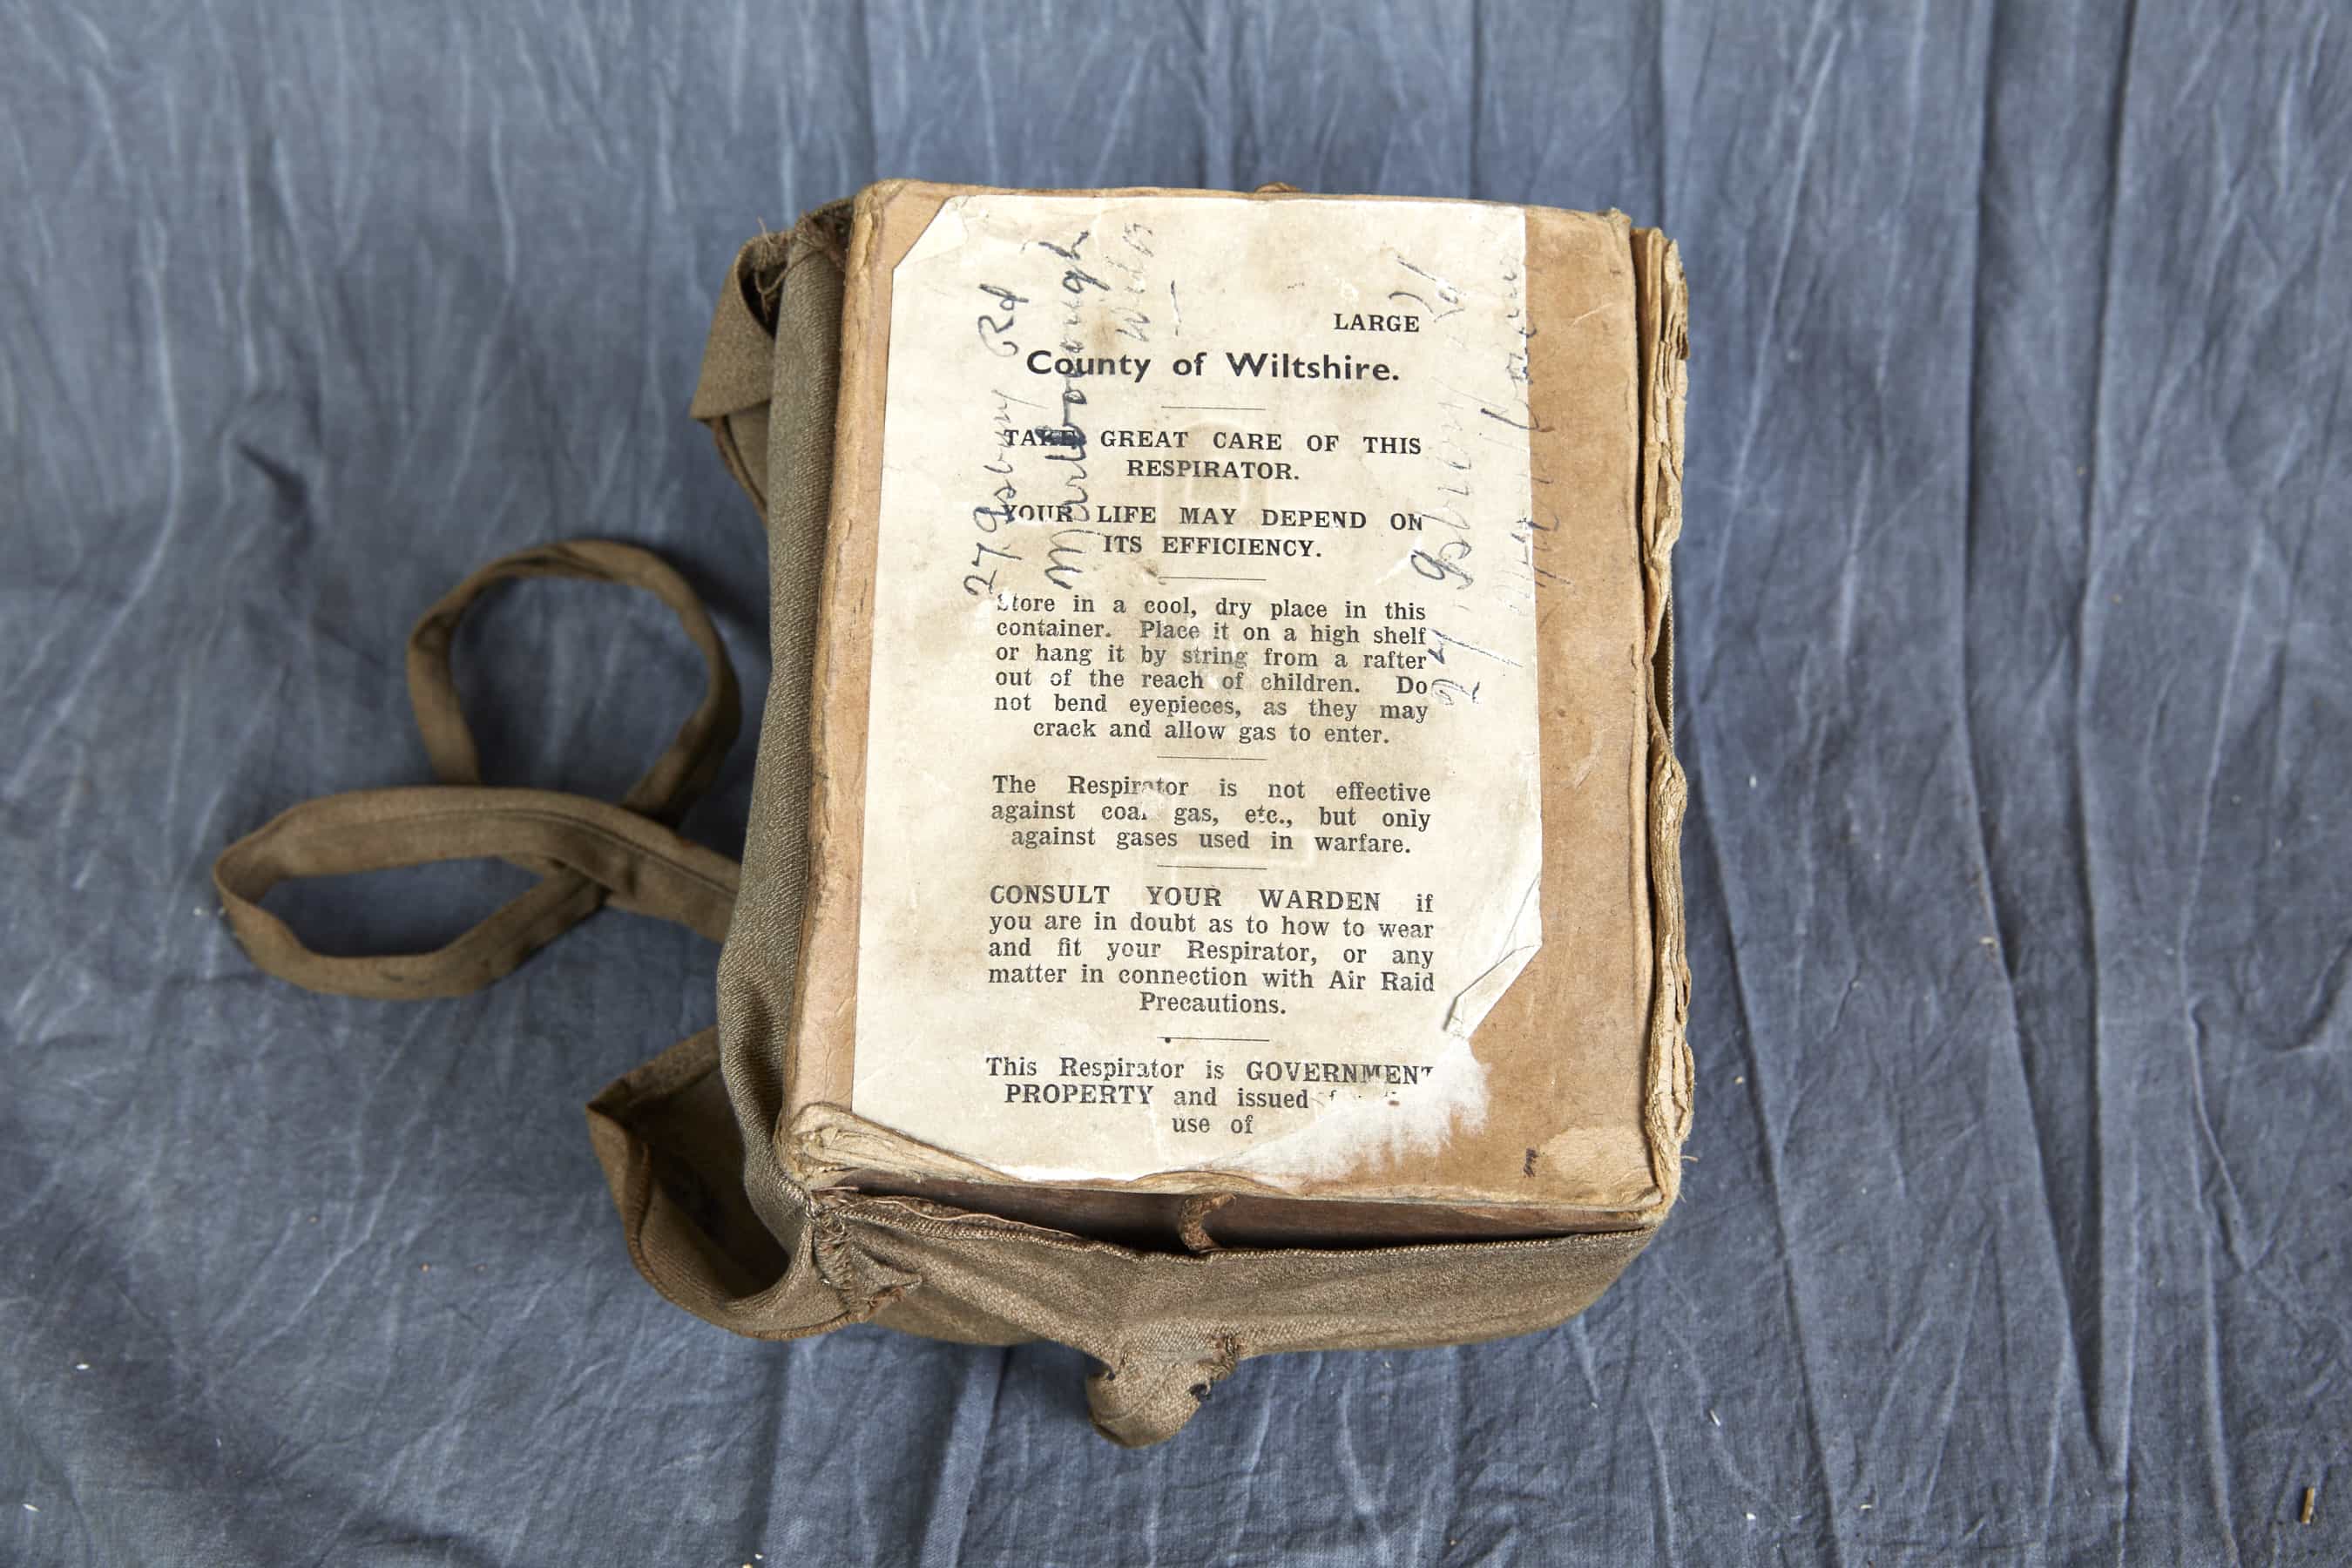 LARGE
County of Wiltshire.
TAKE GREAT CARE OF THIS
RESPIRATOR.
YOUR LIFE MAY DEPEND ON
ITS EFFICIENCY.
Store in a cool, dry place in this
container. Place it on a high shelf
or hang it by string from a rafter
out of the reach of children. Do
not bend eyepieces, as they may
crack and allow gas to enter.
The Respirator is not effective
against coal gas, etc., but only
against gases used in warfare.
CONSULT YOUR WARDEN if
you are in doubt as to how to wear
and fit your Respirator, or any
matter in connection with Air Raid
Precautions.
This Respirator is GOVERNMENT
PROPERTY and issued
use of
27 Rd
Marlborough
Wilts
27 Rd